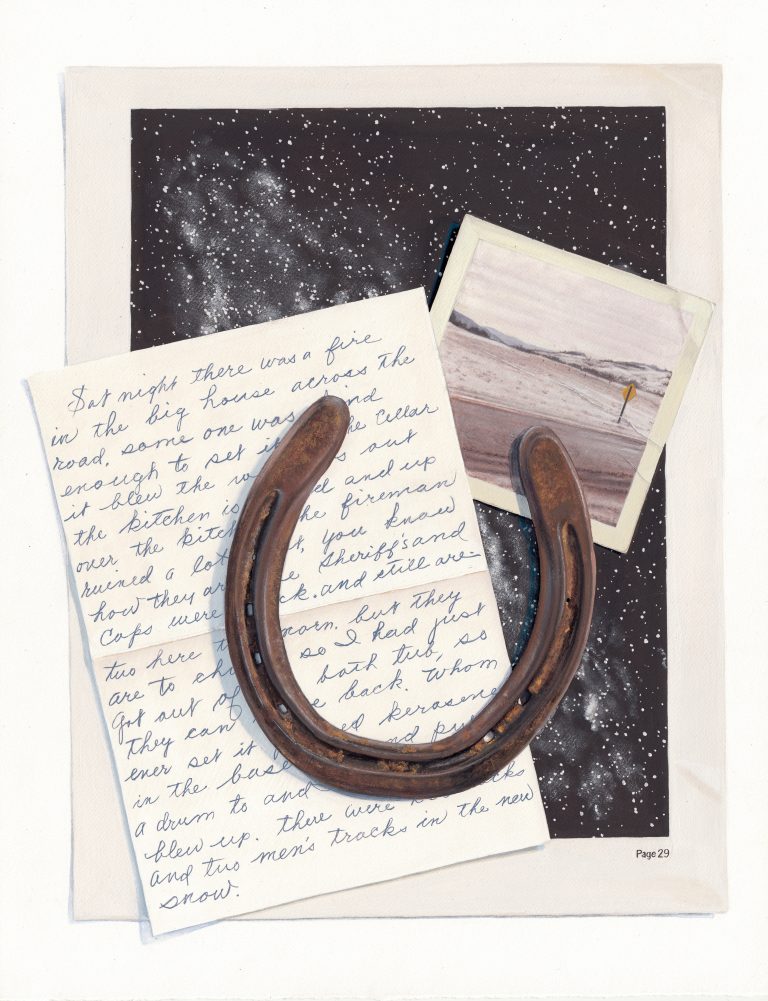 Sat night there was a fire
in the big house across the
road, some one was kind
enough to set it the cellar
it blew the out
the kitchen is and up
over the kitch he fireman
ruined a lot t, you know
how they ar e sheriff's and
Cops were ck. and still are-
two here morn. but they
are to ch so I had just
Got out of bath tub, so
they can e back. Whom
ever set it ed kerosene
in the base nd pu
a drum to and
blew up. there were cks
and two men's tracks in the new
snow.
Page 29